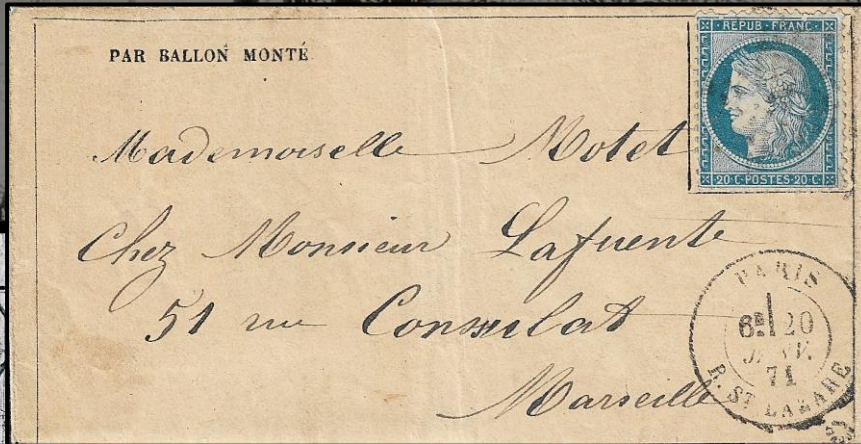 PAR BALLON MONTÉ
REPUB·FRANC·
20·C·POSTES·20·C·
Mademoiselle Motet
Chez Monsieur Lafuente
51 rue Consulat
Marseille
PARIS
6E 20
JANV.
71
R. ST LAZARE